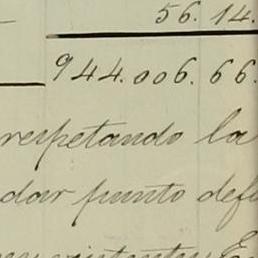 56. 14.
944.006. 66.
respetando la
dar punto def
existentes